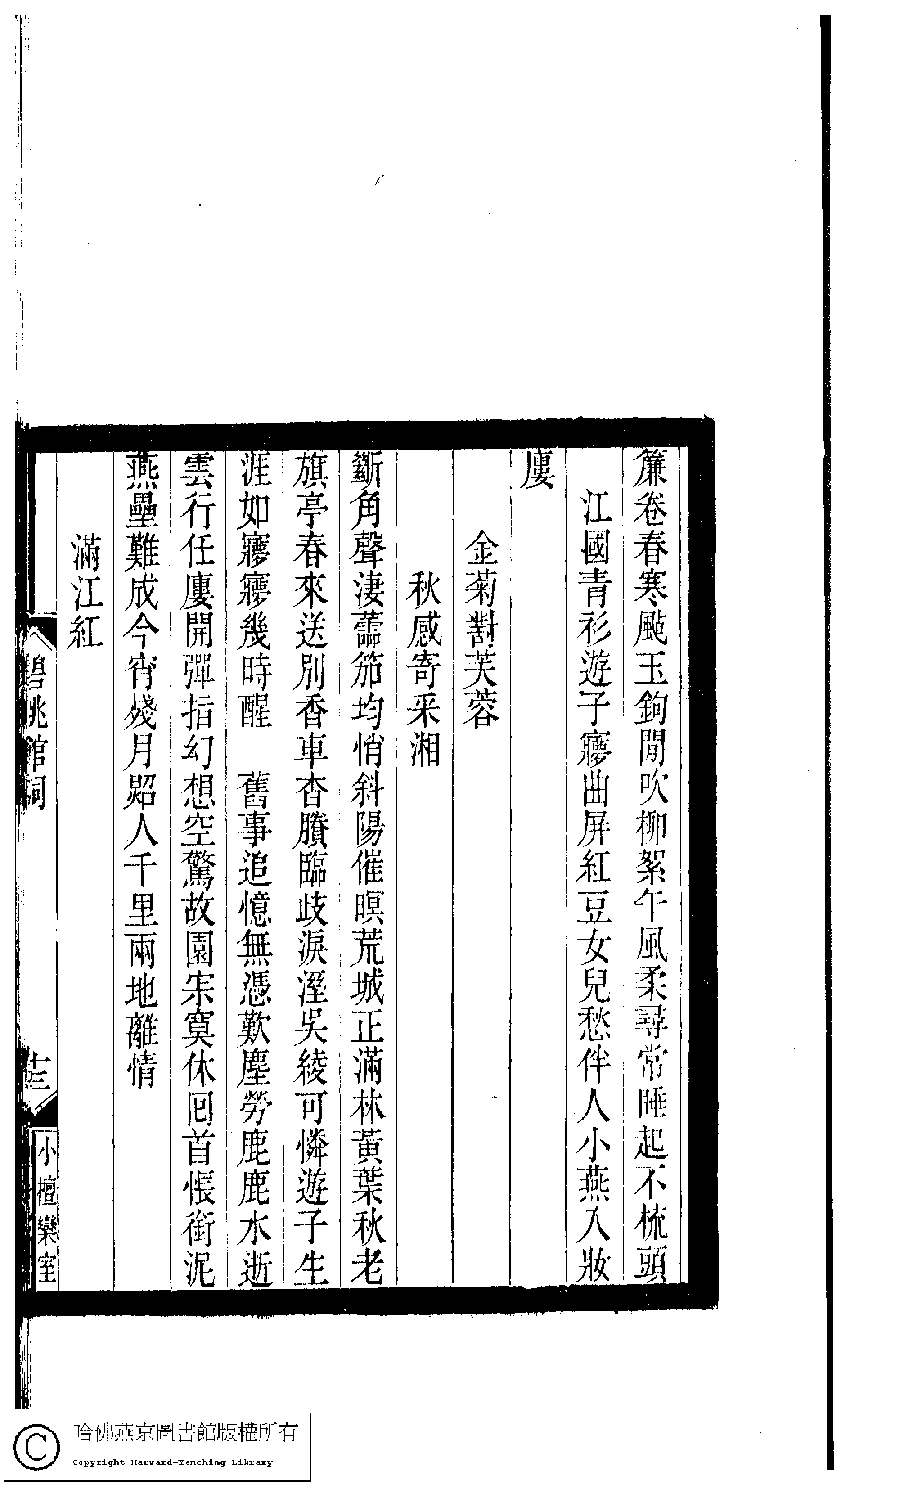 簾卷春寒颭玉鉤閒吹柳絮午風柔尋常睡起不梳頭
江國青衫遊子㝱曲屏紅豆女兒愁伴人小燕入妝
廔
金菊對芙蓉
秋感寄采湘
斷角聲淒蘦笳均悄斜陽催暝荒城正滿林黃葉秋老
旗亭春來送別香車杳賸臨歧淚溼吳綾可憐遊子生
涯如㝱㝱幾時醒　舊事追憶無憑歎塵勞鹿鹿水逝
雲行任廔開彈指幻想空驚故園宗寞休囘首悵銜泥
燕壘難成今宵殘月炤人千里兩地離情
滿江紅
碧桃館詞
十三
小檀欒室
哈佛燕京圖書館版權所有
Copyright Harvard-Yenching Library